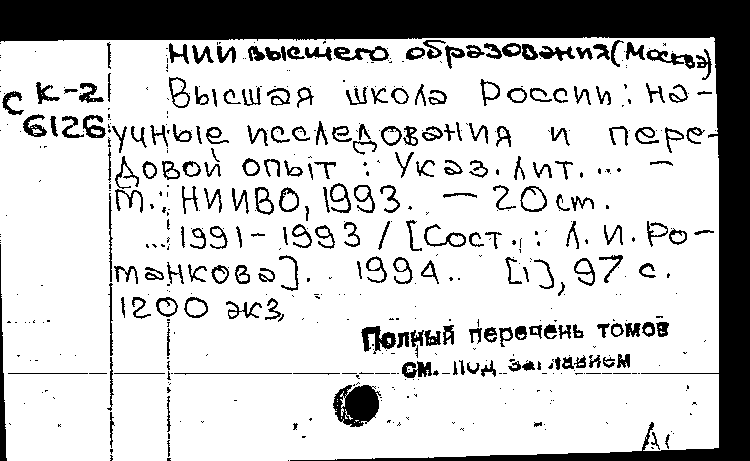 НИИ высшего образования (Москва)
С К-2
6126
Высшая школа России: на-
учные исследования и пере-
довой опыт: Указ. лит. ... –
М.: НИИВО, 1993. – 20 см.
... 1991-1993 / [Сост.: Л. И. Ро-
манкова]. 1994. [1], 97 с.
1200 экз.
Полный перечень томов
см. под заглавием